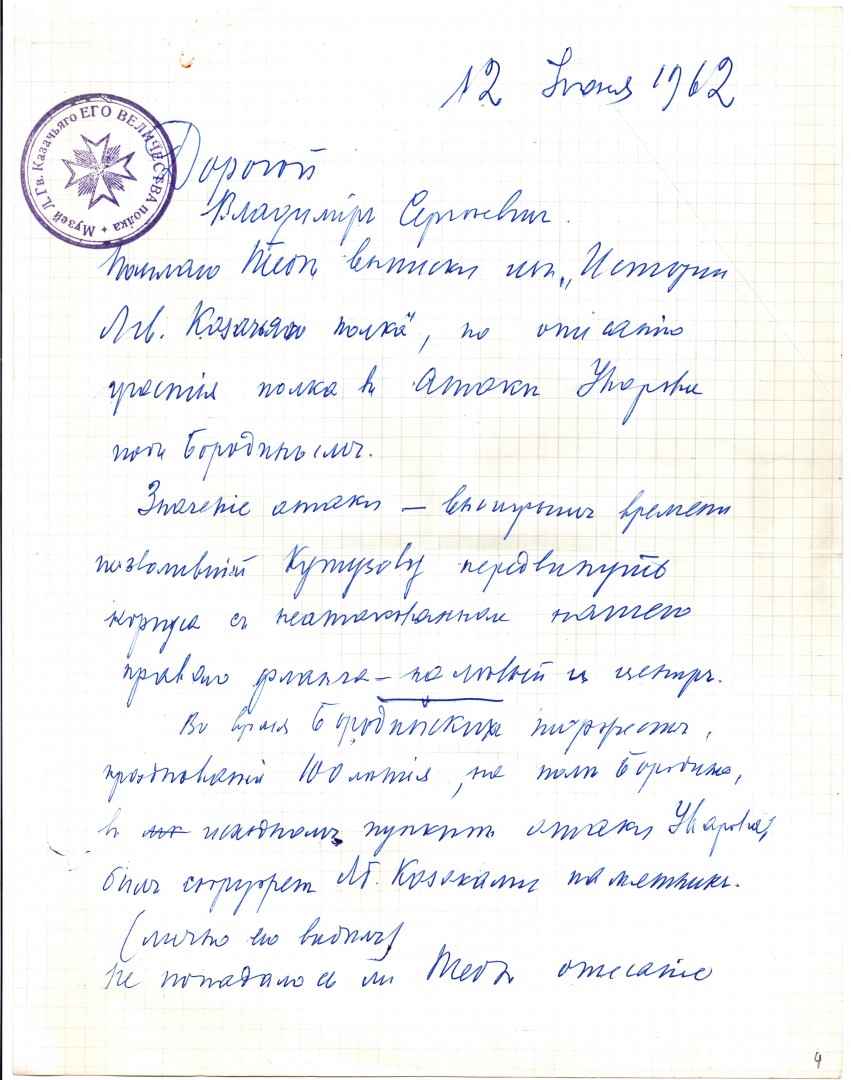 12 Іюня 1962
Музей Л. Гв. Казачьяго ЕГО ВЕЛИЧЕСТВА полка
Дорогой
Владиміръ Сергѣевичъ.
Посылаю Тебѣ выписки изъ „Исторіи
Лгв. Казачьяго полка", по описанію
участія полка въ Атаки Уварова
подъ Бородинымъ.
Значеніе атаки — выигрышъ времени
позволившій Кутузову передвинуть
корпуса съ неатакованнаго нашего
праваго фланга — на лѣвый и центръ.
Во время Бородинскихъ торжествъ,
празднованія 100лѣтія, на полѣ Бородина,
въ исходномъ пунктѣ атаки Уварова,
былъ сооруженъ Лб. Казаками памятникъ.
(лично его видѣлъ)
Не попадалось ли Тебѣ описаніе
4